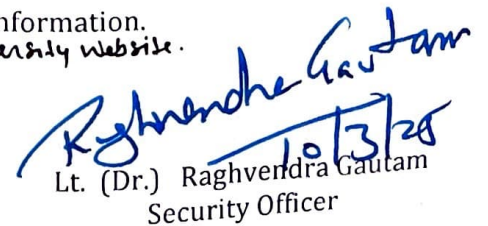 nformation.
ersity website.
Raghvendra Gautam
10/3/25
Lt. (Dr.) Raghvendra Gautam
Security Officer